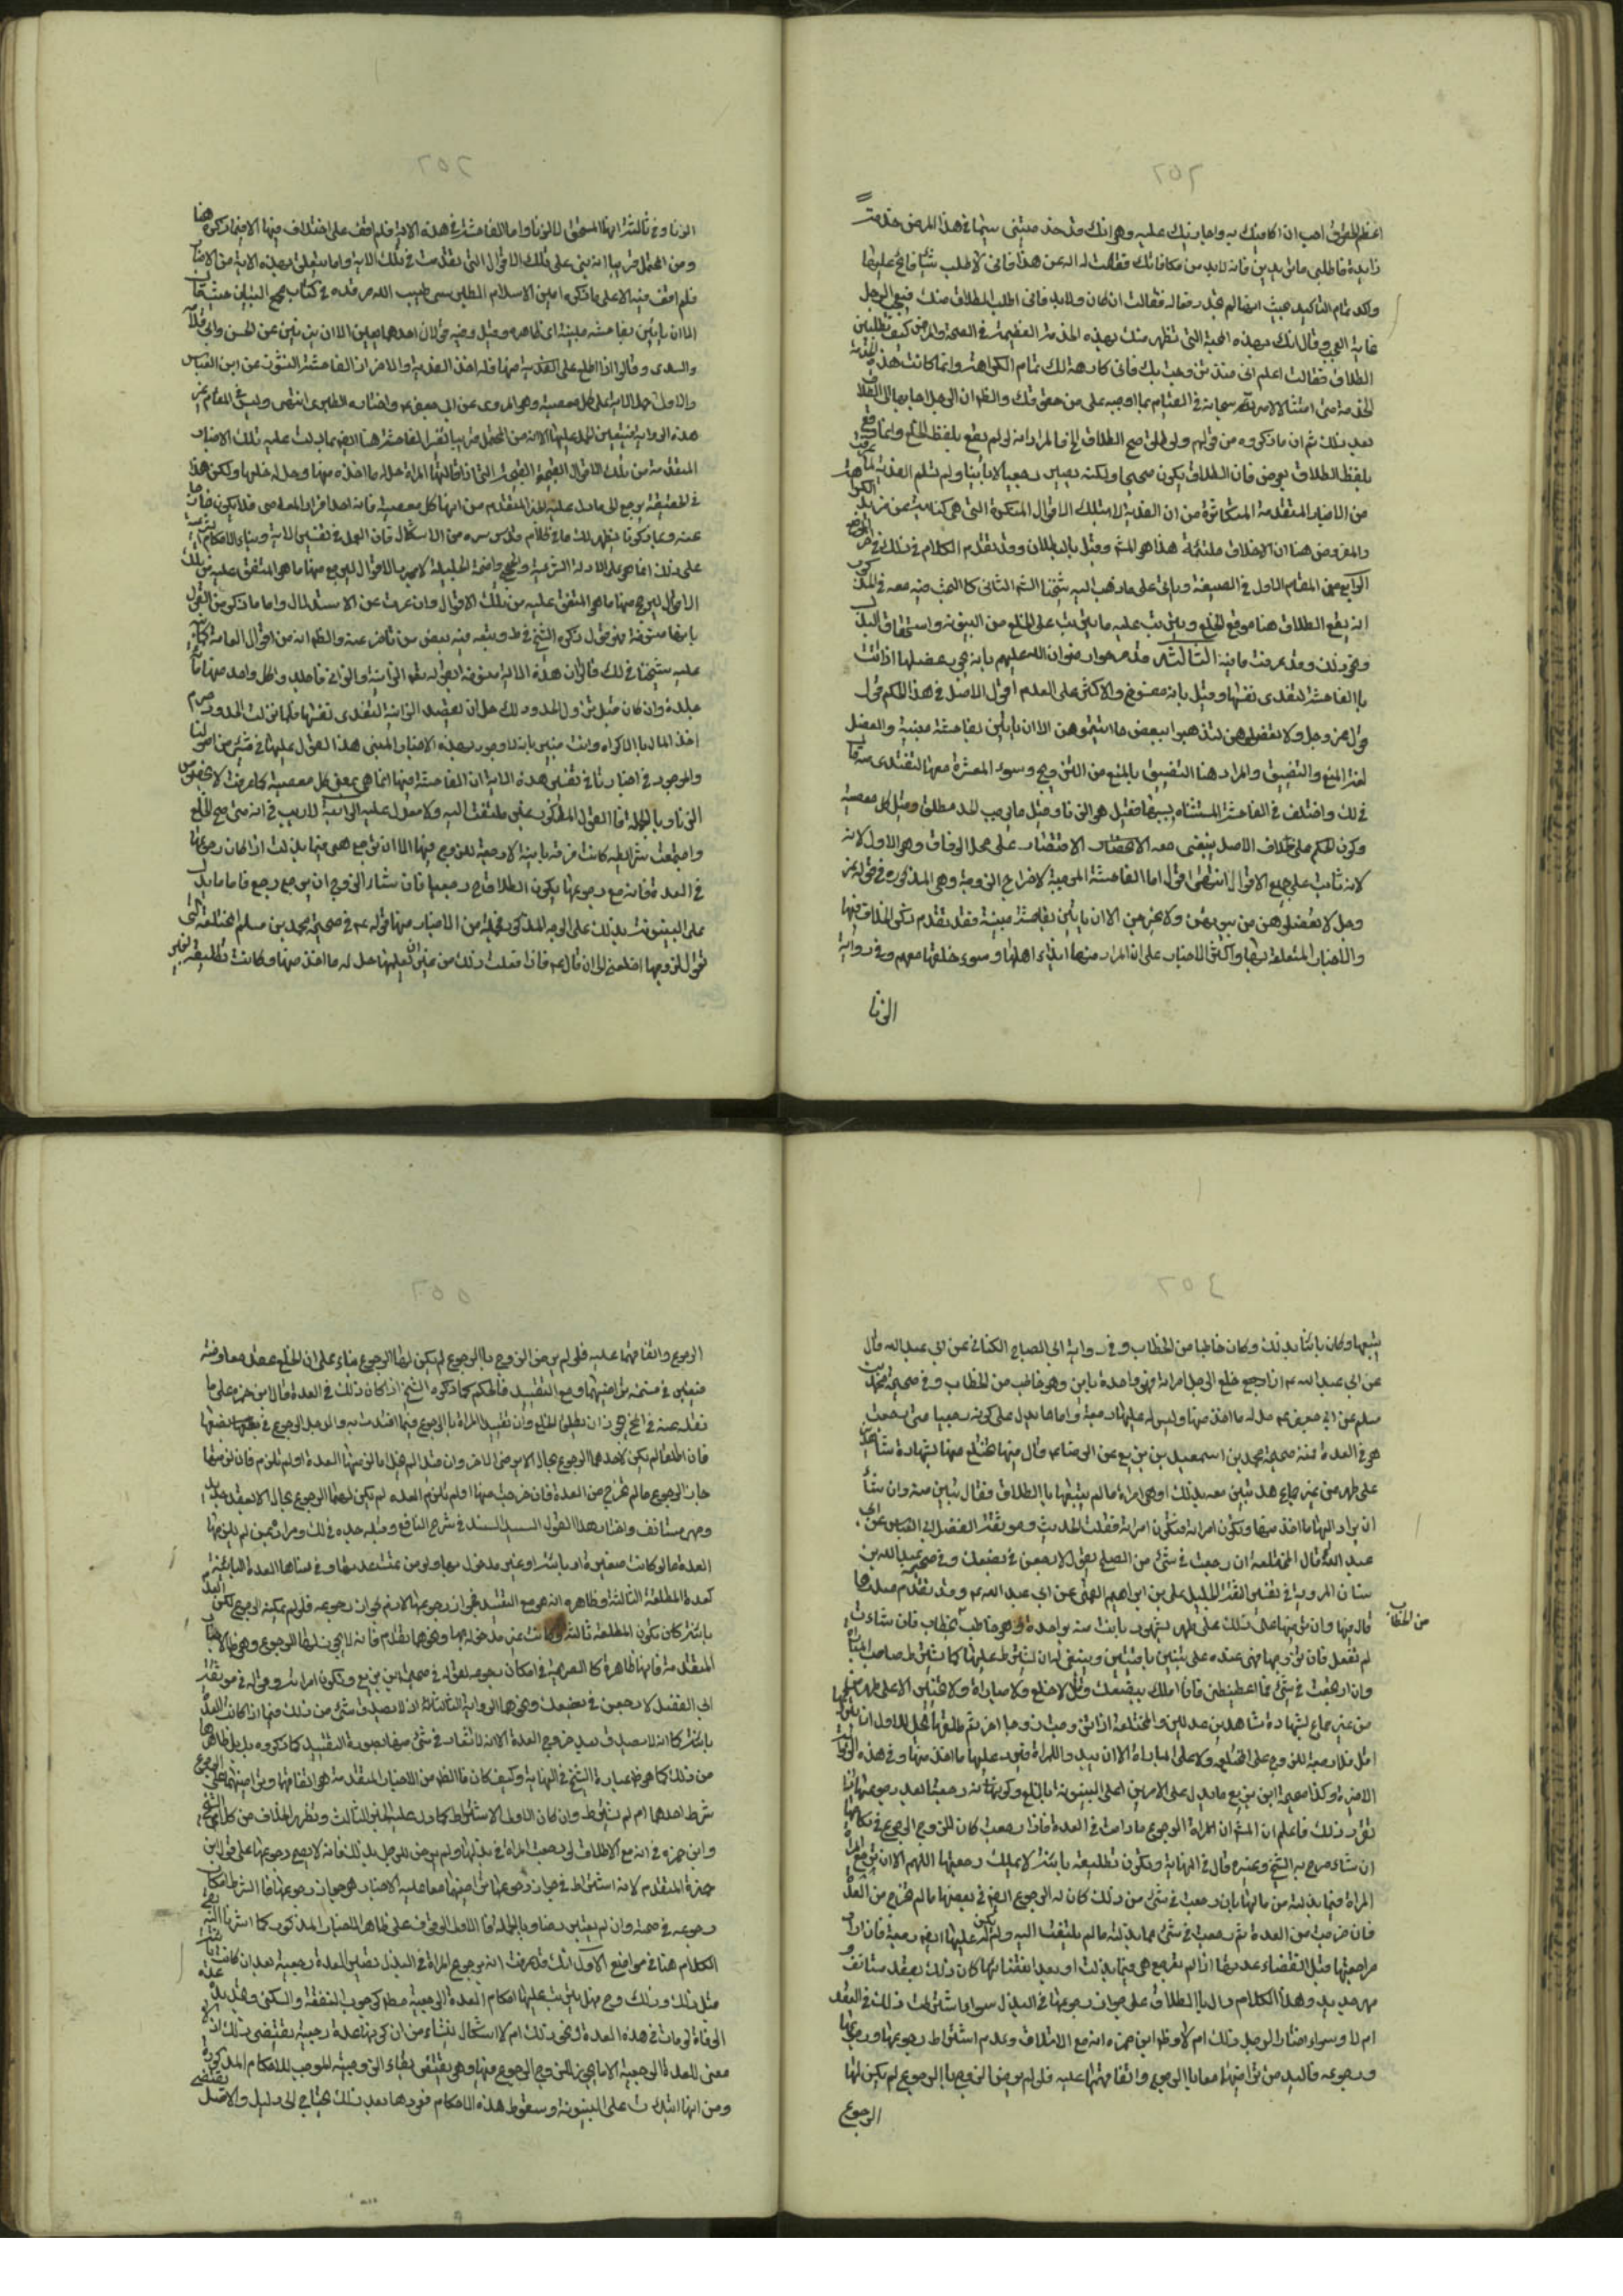 اعظم الحقوق احب ان اكافيك به واجازيك عليه وهو انك قد خدمتنى سيما فى هذا المرض خدمة
زايدة فاطلبى ما تريدين فانه لا بد من مكافاتك فقالت له اله عن هذا فانى لا اطلب شيئا فالح عليها
واكد تمام التاكيد بحيث انها لم تجد رفعا له فقالت ان كان ولا بد فانى اطلب الطلاق منك فتعجب الرجل
غاية العجب وقال انك بهذه المحبة التى تظهر منك بهذه الخدمة العظيمة فى الصحة والمرض كيف تطلبين
الطلاق فقالت اعلم انى منذ تزوجت بك فانى كارهة لك تمام الكراهة وانما كانت هذه
الخدمة منى امتثالا لامره سبحانه فى القيام بما اوجبه على من حقوقك والظ ان الرجل اجابها الى الطلاق
بعد ذلك ثم ان ما ذكروه من قولهم ولو طلق صح الطلاق الخ فالمراد انه لو لم يقع بلفظ الخلع وانما وقع
بلفظ الطلاق بعوض فان الطلاق يكون صحيحا ولكنه يصير رجعيا لا باينا ولم تسلم الفدية لما عرفت
من الاخبار المتقدمة المتكاثرة من ان الفدية لا بتلك الاقوال المنكرة التى هى كناية عن مزيد الكراهة
والمفروض هنا ان الاخلاق ملتئمة هذا هو المش وقيل بالبطلان وقد تقدم الكلام فى ذلك فى الموضع
الرابع من المقام الاول فى الصيغة وياتى على ما ذهب اليه شيخنا الشه الثانى كما تقدم البحث فيه معه فى المذكور
انه يقع الطلاق هنا موقع الخلع ويترتب عليه ما يترتب على الخلع من البينونة واستحقاق البذل
ونحو ذلك وقد عرفت ما فيه الثالثة قد صرحوا رضوان الله عليهم بانه يجوز عضلها اذا اتت
بالفاحشة لتفدى نفسها وقيل بانه منسوخ والاكثر على العدم اقول الاصل فى هذا الحكم قوله
عز وجل ولا تعضلوهن لتذهبوا ببعض ما اتيتموهن الا ان ياتين بفاحشة مبينة والعضل
لغة المنع والتضييق والمراد هنا التضييق بالمنع من التزويج وسوء العشرة معها لتفتدى
ذلك واختلف فى الفاحشة المستثناة بسببها فقيل هو الزنا وقيل ما يوجب الحد مطلق وقيل كل معصية
وكون الحكم على خلاف الاصل ينبغى معه الاقتصار على محل الوفاق وهو الاول لانه
لانه ثابت على جميع الاقوال انتهى اقول اما الفاحشة الموجبة لاخراج الزوجة وهى المذكوره فى قوله عز
وجل لا تخرجوهن من بيوتهن ولا يخرجن الا ان ياتين بفاحشة مبينة فقد تقدم ذكر الخلاف فيها
والاخبار المتعلقة بها واكثر الاخبار على ان المراد منها ايذاء اهلها وسوء خلقها معهم وفى رواية
الزنا
الزنا وفى ثالثة انها السحق لا الزنا واما الفاحشة فى هذه الاية فلم اقف على اختلاف فيها الا فيما ذكروه هنا
ومن المحتمل قريبا انه بنى على تلك الاقوال التى تقدمت فى تلك الاية واما ما يتعلق بهذه الاية من الاخبار
فلم اقف فيه الا على ما ذكره امين الاسلام الطبرسى طيب الله مرقده فى كتاب مجمع البيان حيث قال
الا ان ياتين بفاحشة مبينة اى ظاهرة وقيل وفيه قولان احدهما يعنى الا ان يزنين عن الحسن وابى قلابة
والسدى وقالوا اذا اطلع على الفدية منها فله اخذ الفدية والاخر ان الفاحشة النشوز عن ابن العباس
والاولى حمل الاية على كل معصية وهو المروى عن ابى جعفر ع واختاره الطبرى انتهى وليس فى المقام غير
هذه الرواية
المتقدمة من تلك الاقوال القبيحة التى اذا قالتها المراة حل له ما اخذه منها وحل له خلعها ولكن هذا
فى الحقيقة يرجع الى ما دل عليه الخبر المتقدم من انها كل معصية فانه احد افراد المعاصى فلا يكون خارجا
عنه وبما ذكرنا يظهر لك ما فى كلام قدس سره من الاشكال فان العمل فى تفسير الاية وبناء الاحكام الشرعية
على ذلك انما هو على الادلة الشرعية والحجج واضحة الجليلة لا مجرد الاقوال ليرجع منها ما هو المتفق عليه من تلك
الاقوال ليرجح منها ما هو المتفق عليه من تلك الاقوال وان عريت عن الاستدلال واما ما ذكره من القول
بانها منسوخة فهو قول ذكره الشيخ فى ط وتبعه فيه بعض من تاخر عنه والظ انه من اقوال العامة كما نبه
عليه شيخنا فى لك قال وان هذه الاية منسوخة بقوله تعالى الزانية والزانى فاجلدوا كل واحد منهما مائة
جلدة وان كان قبل نزول الحدود لك حل ان يعضد الزانية لتفدى نفسها فلما نزلت الحدود حرم
اخذ المال بالاكراه وانت خبير بانه لا وجود لهذه الاخبار المبنى هذا القول عليها فى شئ من اصولنا
والموجود فى اخبارنا فى تفسير هذه الاية ان الفاحشة فيها انما هى بمعنى كل معصية كما عرفت لا بخصوص
الزنا وبالجملة فالقول المذكور غير ملتفت اليه ولا معول عليه الرابعة لا ريب فى انه متى صح الخلع
واجتمعت شرايطه كانت فرقة باينة لا رجعة للزوج فيها الا ان ترجع هى فيما بذلت اذا كان رجوعها
فى العدة فانه مع رجوعها يكون الطلاق ح رجعيا فان شاء الزوج ان يرجع رجع فاما ما يدل
على البينونة بذلك على الوجه المذكور فجملة من الاخبار منها قوله ع فى صحيحة محمد بن مسلم المختلعة التى
تقول لزوجها اخلعنى الى ان قال ع فاذا فعلت ذلك من غير ان يعلمها حل له ما اخذ منها وكانت تطليقة بغير
يتبعها وكان باينا بذلك وكان خاطبا من الخطاب وفى رواية ابى الصباح الكنانى عن ابى عبد الله قال
عن ابى عبد الله ع اذا خلع الرجل امراته فهى واحدة باين وهو خاطب من الخطاب وفى صحيحة محمد بن
مسلم عن ابى جعفر ع حل له ما اخذ منها وليس له عليها رجعة واما ما يدل على كونه رجعيا متى رجعت
هى فى العدة فمنه صحيحة محمد بن اسمعيل بن بزيع عن الرضا ع وقال فيها تختلع منها بشهادة شاهدين
على طهر من غير جماع هل تبين منه بذلك او هى امراته ما لم يتبعها بالطلاق فقال تبين منه وان شاء
ان يرد اليها ما اخذ منها وتكون امراته فتكون امراته فقلت الحديث وموثقة الفضل ابى العباس عن ابى
عبد الله ع قال المختلعة ان رجعت فى شئ من الصلح يقول لارجعن فى بضعك وفى صحيحة عبد الله بن
سنان المروية فى تفسير الثقة الجليل على بن ابراهيم القمى عن ابى عبد الله ع وقد تقدم صدرها
قال فيها وان تزوجها على ذلك على طهر بشهود بانت منه بواحدة وهو خاطب كخطاب فان شاءت
من الخطاب
لم تفعل فان تزوجها فهى عنده على ثنتين باقيتين وينبغى له ان يشترط عليها كما يشترط صاحب المباراة
وان ارتجعت فى شئ مما اعطيتنى فانا املك ببضعك وقال لا خلع ولا مباراة ولا تخيير الا على طهر
من غير جماع بشهادة شاهدين عدلين والمختلعة اذا تزوجت زوجا اخر ثم طلقها تحل للاول ان يتزوج
الاخيرة وكذا صحيحة ابن بزيع ما يدل على الامرين اعنى البينونة بالخلع وكونها
تقرر ذلك فاعلم ان المش ان للمراة الرجوع ما دامت فى العدة فاذا رجعت كان للزوج الرجوع فى نكاحها
ان شاء صرح به الشيخ وغيره قال فى النهاية وتكون تطليقه باينة لا يملك رجعتها اللهم الا ان ترجع المراة
المراة فيما بذلته من مالها فان رجعت فى شئ من ذلك كان له الرجوع ايض فى بضعها ما لم تخرج من العدة
فان خرجت من العدة ثم رجعت فى شئ مما بذلته ما لم يلتفت اليه ولم يكن له عليها ايض رجعة فان اراد
مراجعتها قبل انقضاء عدتها اذا لم ترجع هى فيما بذلت او بعد انقضائها كان ذلك بعقد مستانف
مهر جديد وهذا الكلام دال باطلاقه على جواز رجوعها فى البذل سواء اشترطت ذلك فى العقد
ام لا وسواء اختار الرجل ذلك ام لا وظ ابن حمزه انه مع الاطلاق وعدم اشتراط رجوعها ورجوعه
ورجوعه فلابد من تراضيهما معا بالرجوع واتفاقهما عليه فلو لم يرض الزوج بالرجوع لم يكن لها
الرجوع
الرجوع واتفاقهما عليه فلو لم يرض الزوج بالرجوع لم يكن لها الرجوع بناء على ان الخلع عقد معاوضة
فيعتبر فى فسخه تراضيهما ومع التقييد فالحكم كما ذكره الشيخ اذا كان ذلك فى العدة قال ابن حمزه على ما
نقله عنه فى المخ يجوز ان يطلقا الخلع وان تقيد المراة بالرجوع فيما افتدت به والرجل الرجوع فى بضعها
فان اطلقا لم يكن لاحدهما الرجوع بحال الا برضى الاخر وان قيدا لم يخل اما لزمتها العدة او لم تلزم فان لزمتها
جاز الرجوع ما لم تخرج من العدة فان خرجت منها او لم تلزم العدة لم يكن لهما الرجوع بحال الا بعقد جديد
ومهر مستانف واختار هذا القول السيد السند فى شرح النافع وقبله جده فى لك ومراده بمن لم يلزمها
العدة ما لو كانت صغيرة او يائسة او غير مدخول بها
كعدة المطلقة الثالثة وظاهره انه هو مع التقييد يجوز رجوعها لا يلزم جواز رجوعه فلو لم يمكنه الرجوع لكون العدة
باينة كان تكون المطلقة ثالثة وكانت غير مدخول بها ونحوهما
المتقدمة فانها ظاهرة كالصريحة فى امكان رجوعه لقوله فى صحيحة ابن بزيع وتكون امراته وقوله فى موثقة
ابى الفضل لارجعن فى بضعك ونحوهما الرواية الثالثة اذ لا يصدق شئ من ذلك فيما اذا كانت العدة
باينة كما انه لا يصدق بعد خروج العدة
من ذلك كما هو ظ عبارة الشيخ فى النهاية وكيف كان فالظ من الاخبار المتقدمة هو اتفاقهما وتراضيهما على الرجوع
شرط احدهما ام لم يشترط وان كان الاول الاشتراط كما دل عليه الخبر الثالث ويظهر الخلاف من كلام الشيخ
وابن حمزه فى انه مع الاطلاق لو رجعت المراة فى بذلها ولم يرض الرجل بذلك فانه لا يصح رجوعها على قول ابن
حمزة المتقدم لانه اشتراط فى جواز رجوعها تراضيهما معا
رجوعه فى صحة وان لم يعتبر رضاه وبالجملة فالاولى الوقوف على ظاهر الاخبار المذكوره كما اشرنا اليه بقى
الكلام هنا فى مواضع الاول انك قد عرفت انه برجوع المراة فى البذل تصير العدة رجعية بعد ان كانت باينة
قبل ذلك وذلك وح فهل يترتب عليها احكام العدة الرجعية مطلقا كوجوب النفقة والسكنى
الوفاة لو مات فى هذه العدة ونحو ذلك ام لا اشكال ينشاء من ان كونها عدة رجعية يقتضى ذلك اذ لا
معنى للعدة الرجعية الا ما يجوز للزوج الرجوع فيها وهو يقتضى بقاء الزوجية الموجب للاحكام المذكورة
ومن انها ابتدأت على البينونة وسقوط هذه الاحكام فعودها بعد ذلك يحتاج الى دليل والاصل يقتضى